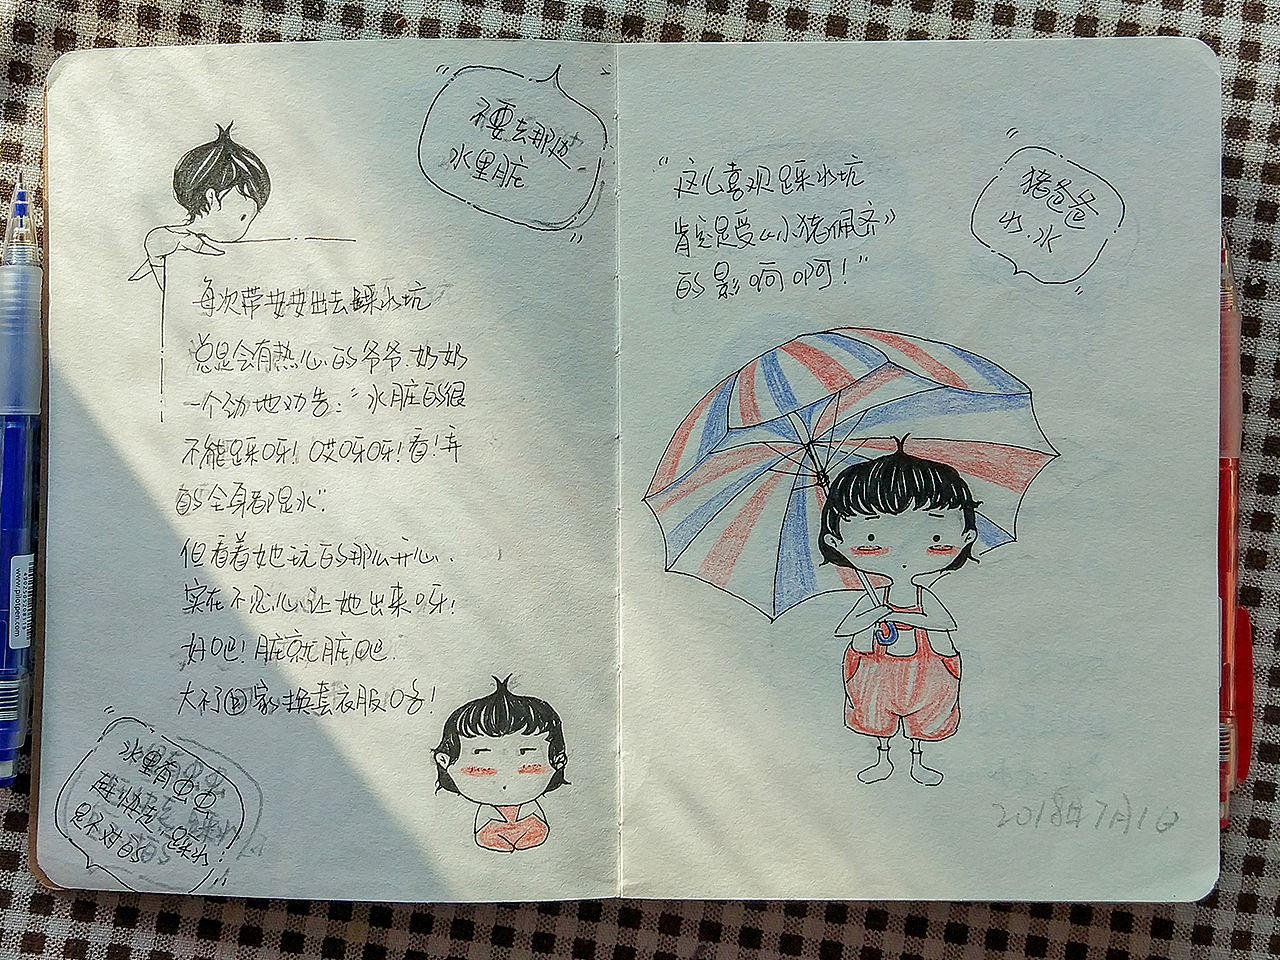 不要去那边
水里脏
每次带女女出去踩水坑
总是会有热心的爷爷、奶奶
一个劲地劝告:“水脏的很
不能踩呀!哎呀呀!看!弄
的全身都是水”
但看着她玩的那么开心、
实在不忍心让她出来呀!
好吧!脏就脏吧.
大不了回家换套衣服咯!
水里有虫虫
赶快走,踩水
是不对的
“这么喜欢踩水坑
肯定是受《小猪佩奇》
的影响啊!”
猪爸爸
水
2018年7月1日
www.pilotpen.com